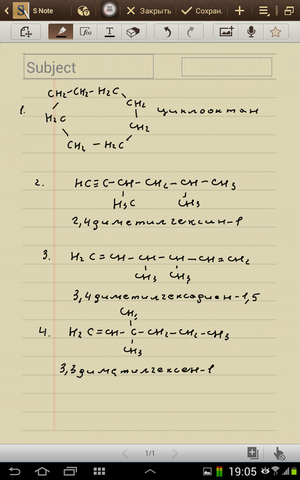 S Note
Закрыть
Сохран.
Subject
CH2-CH2-H2C
1. H2C CH2 циклооктан
CH2
CH2-H2C
2. HC≡C-CH-CH2-CH-CH3
H3C CH3
2,4диметилгексин-1
3. H2C=CH-CH-CH-CH=CH2
CH3 CH3
3,4диметилгексадиен-1,5
CH3
4. H2C=CH-C-CH2-CH2-CH3
CH3
3,3диметилгексен-1
1/1
19:05